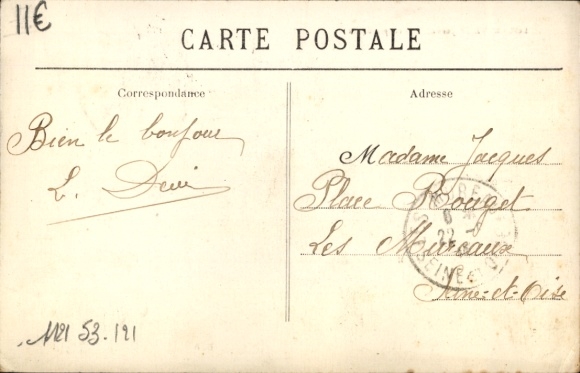 11€
CARTE POSTALE
Correspondance
Adresse
Bien le bonjour
L. Deni
Madame Jacques
Place Rouget
Les Mureaux
Seine-et-Oise
53.121